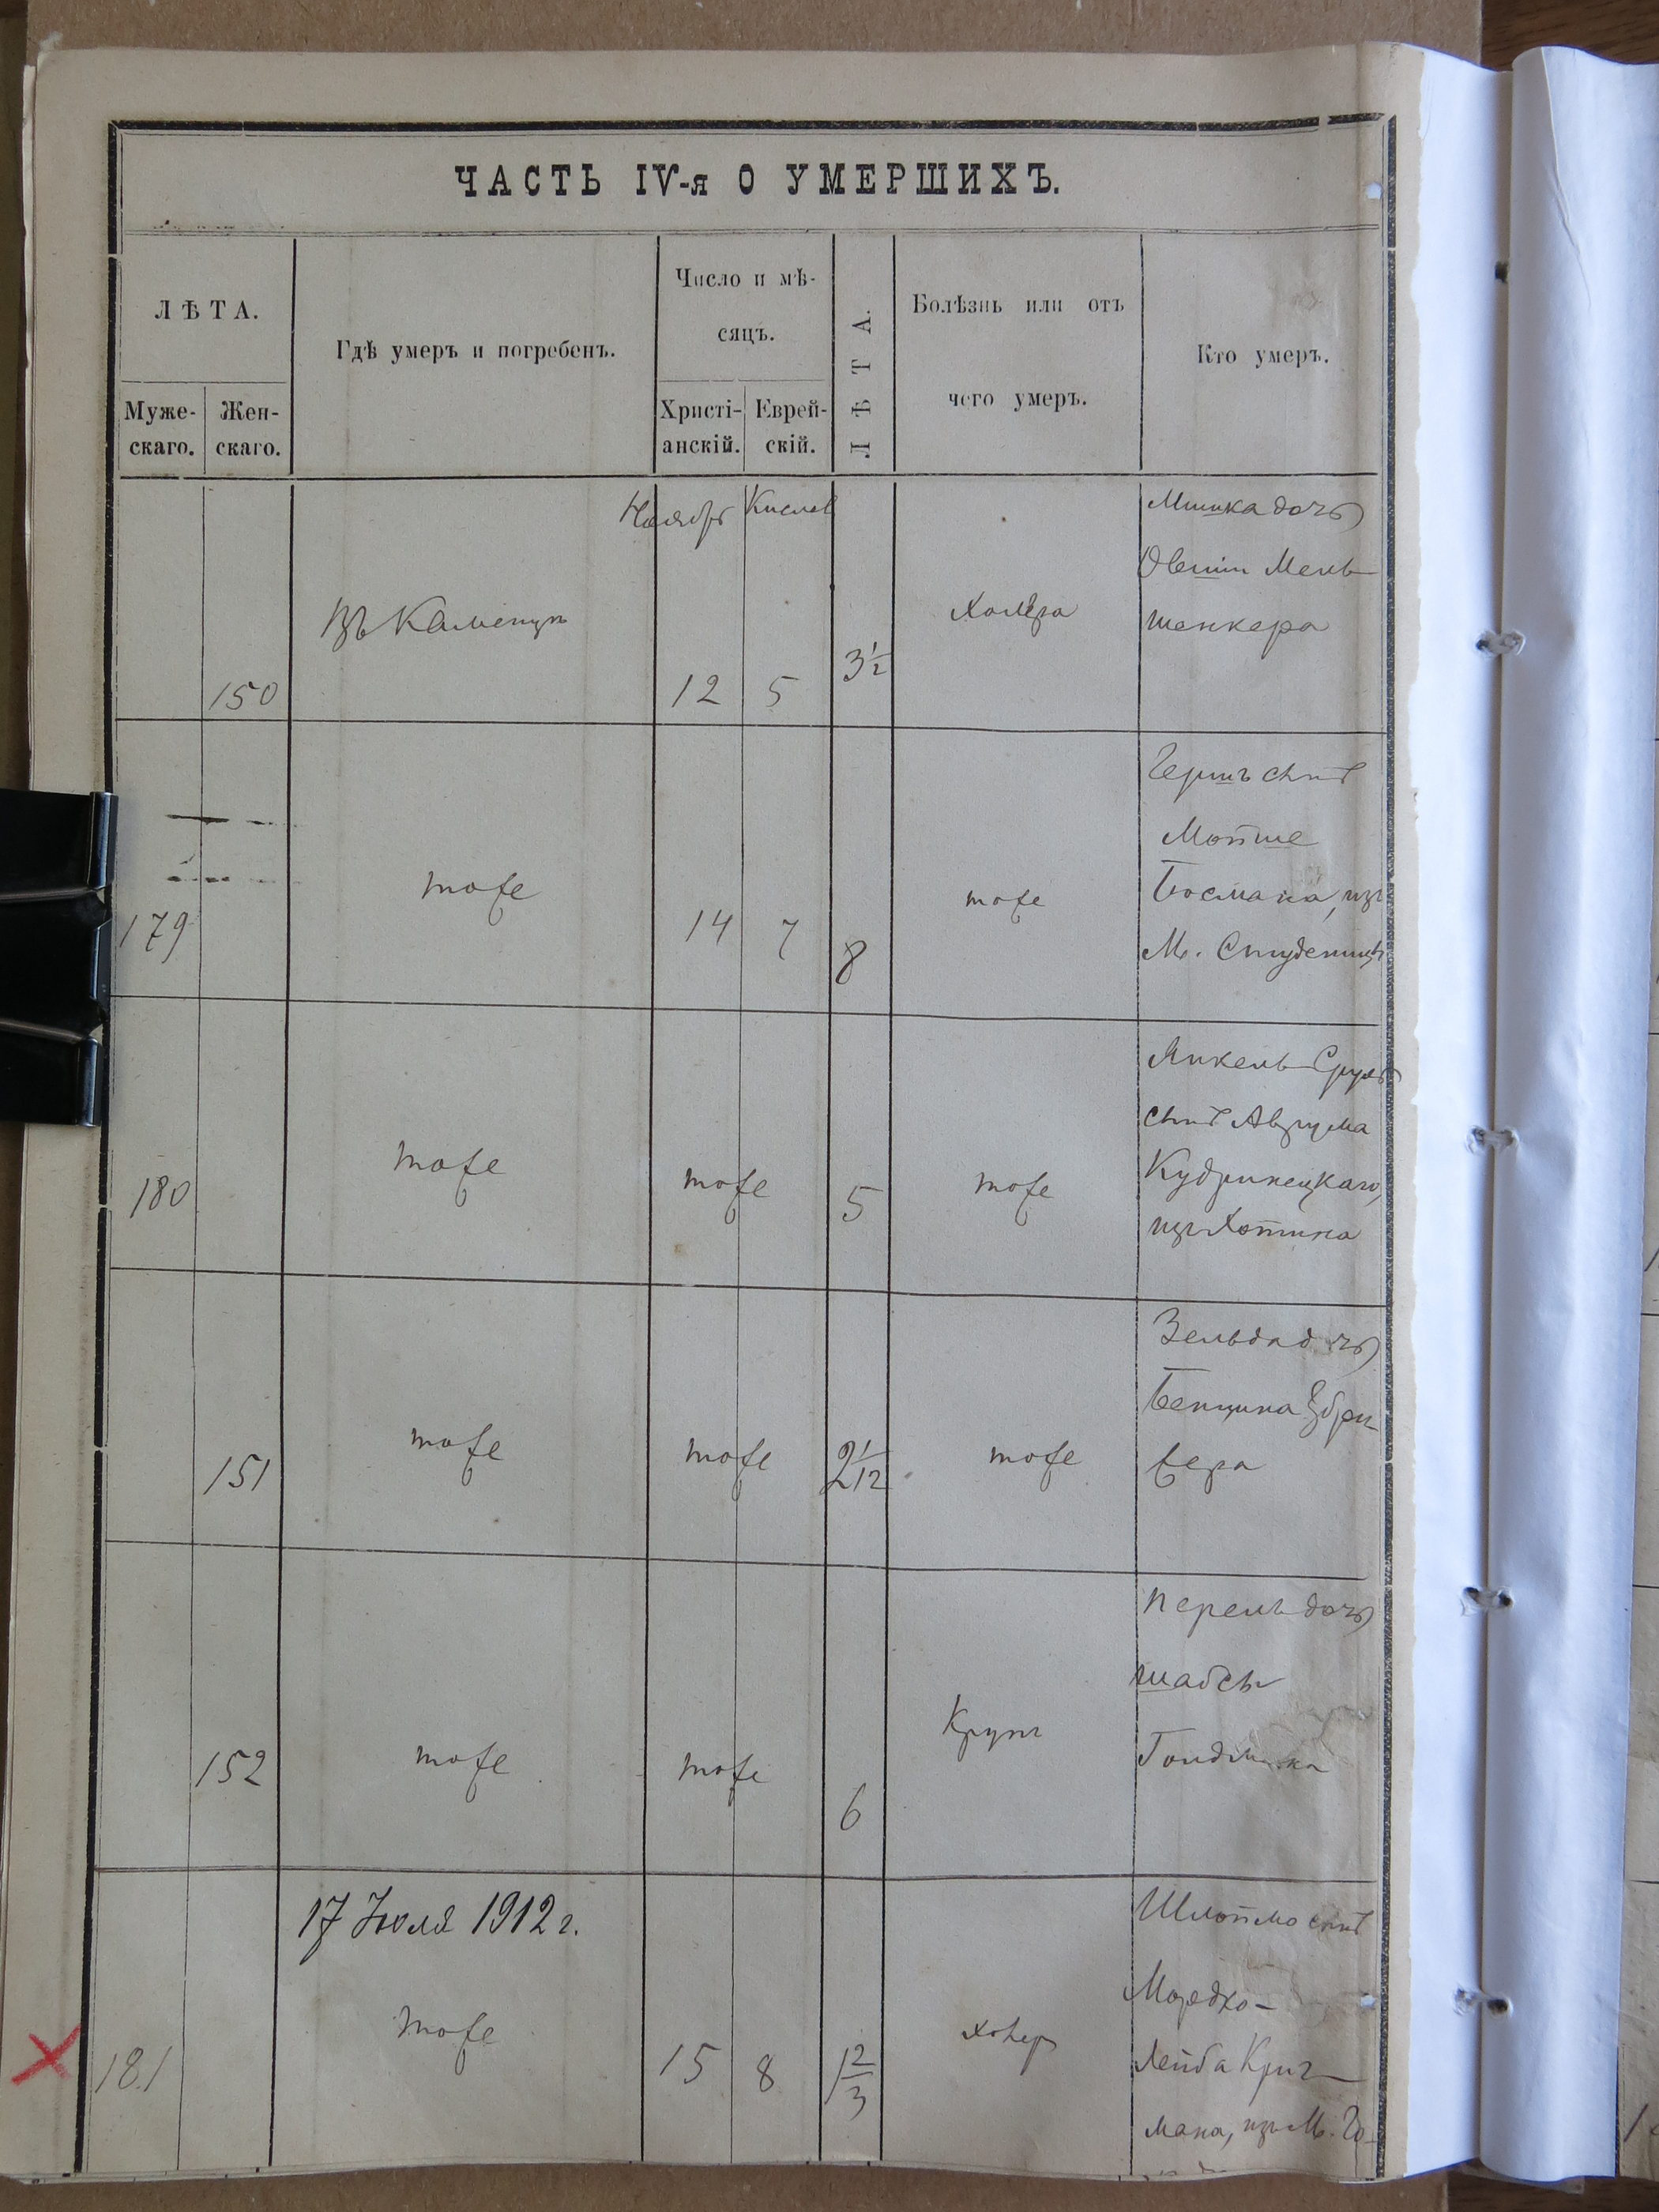 ЧАСТЬ IV-я О УМЕРШИХЪ.
ЛѢТА.
Муже-
скаго.
Жен-
скаго.
Гдѣ умеръ и погребенъ.
Число и мѣ-
сяцъ.
Христі-
анскій.
Еврей-
скій.
ЛѢТА.
Болѣзнь или отъ
чего умеръ.
Кто умеръ.
150
Въ Каменцѣ
Ноябрь Кислев
12 5
3 1/2
Холера
дочь
Мель-
шенкера
179
тоже
14 7
8
тоже
Гершъ сынъ
Мошше
Босмана, изъ
М. Студеницы
180
тоже
тоже
5
тоже
Янкель-Сруль
сынъ Аврума
Кудринецкаго,
изъ Хотина
151
тоже
тоже
2 1/12
тоже
Зельда дочь
Бенциона
вера
152
тоже
тоже
6
Крупъ
Перель дочь
Шабсы
181
17 Июля 1912 г.
тоже
15 8
1 2/3
Шлоймо сынъ
Мордхо-
Лейба Криг-
мана, изъ М.